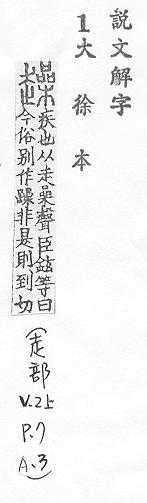 説文解字
1大徐本
趮疾也从走喿聲臣鉉等曰
今俗別作躁非是則到切
(走部
V.2上
P.7
A.3)